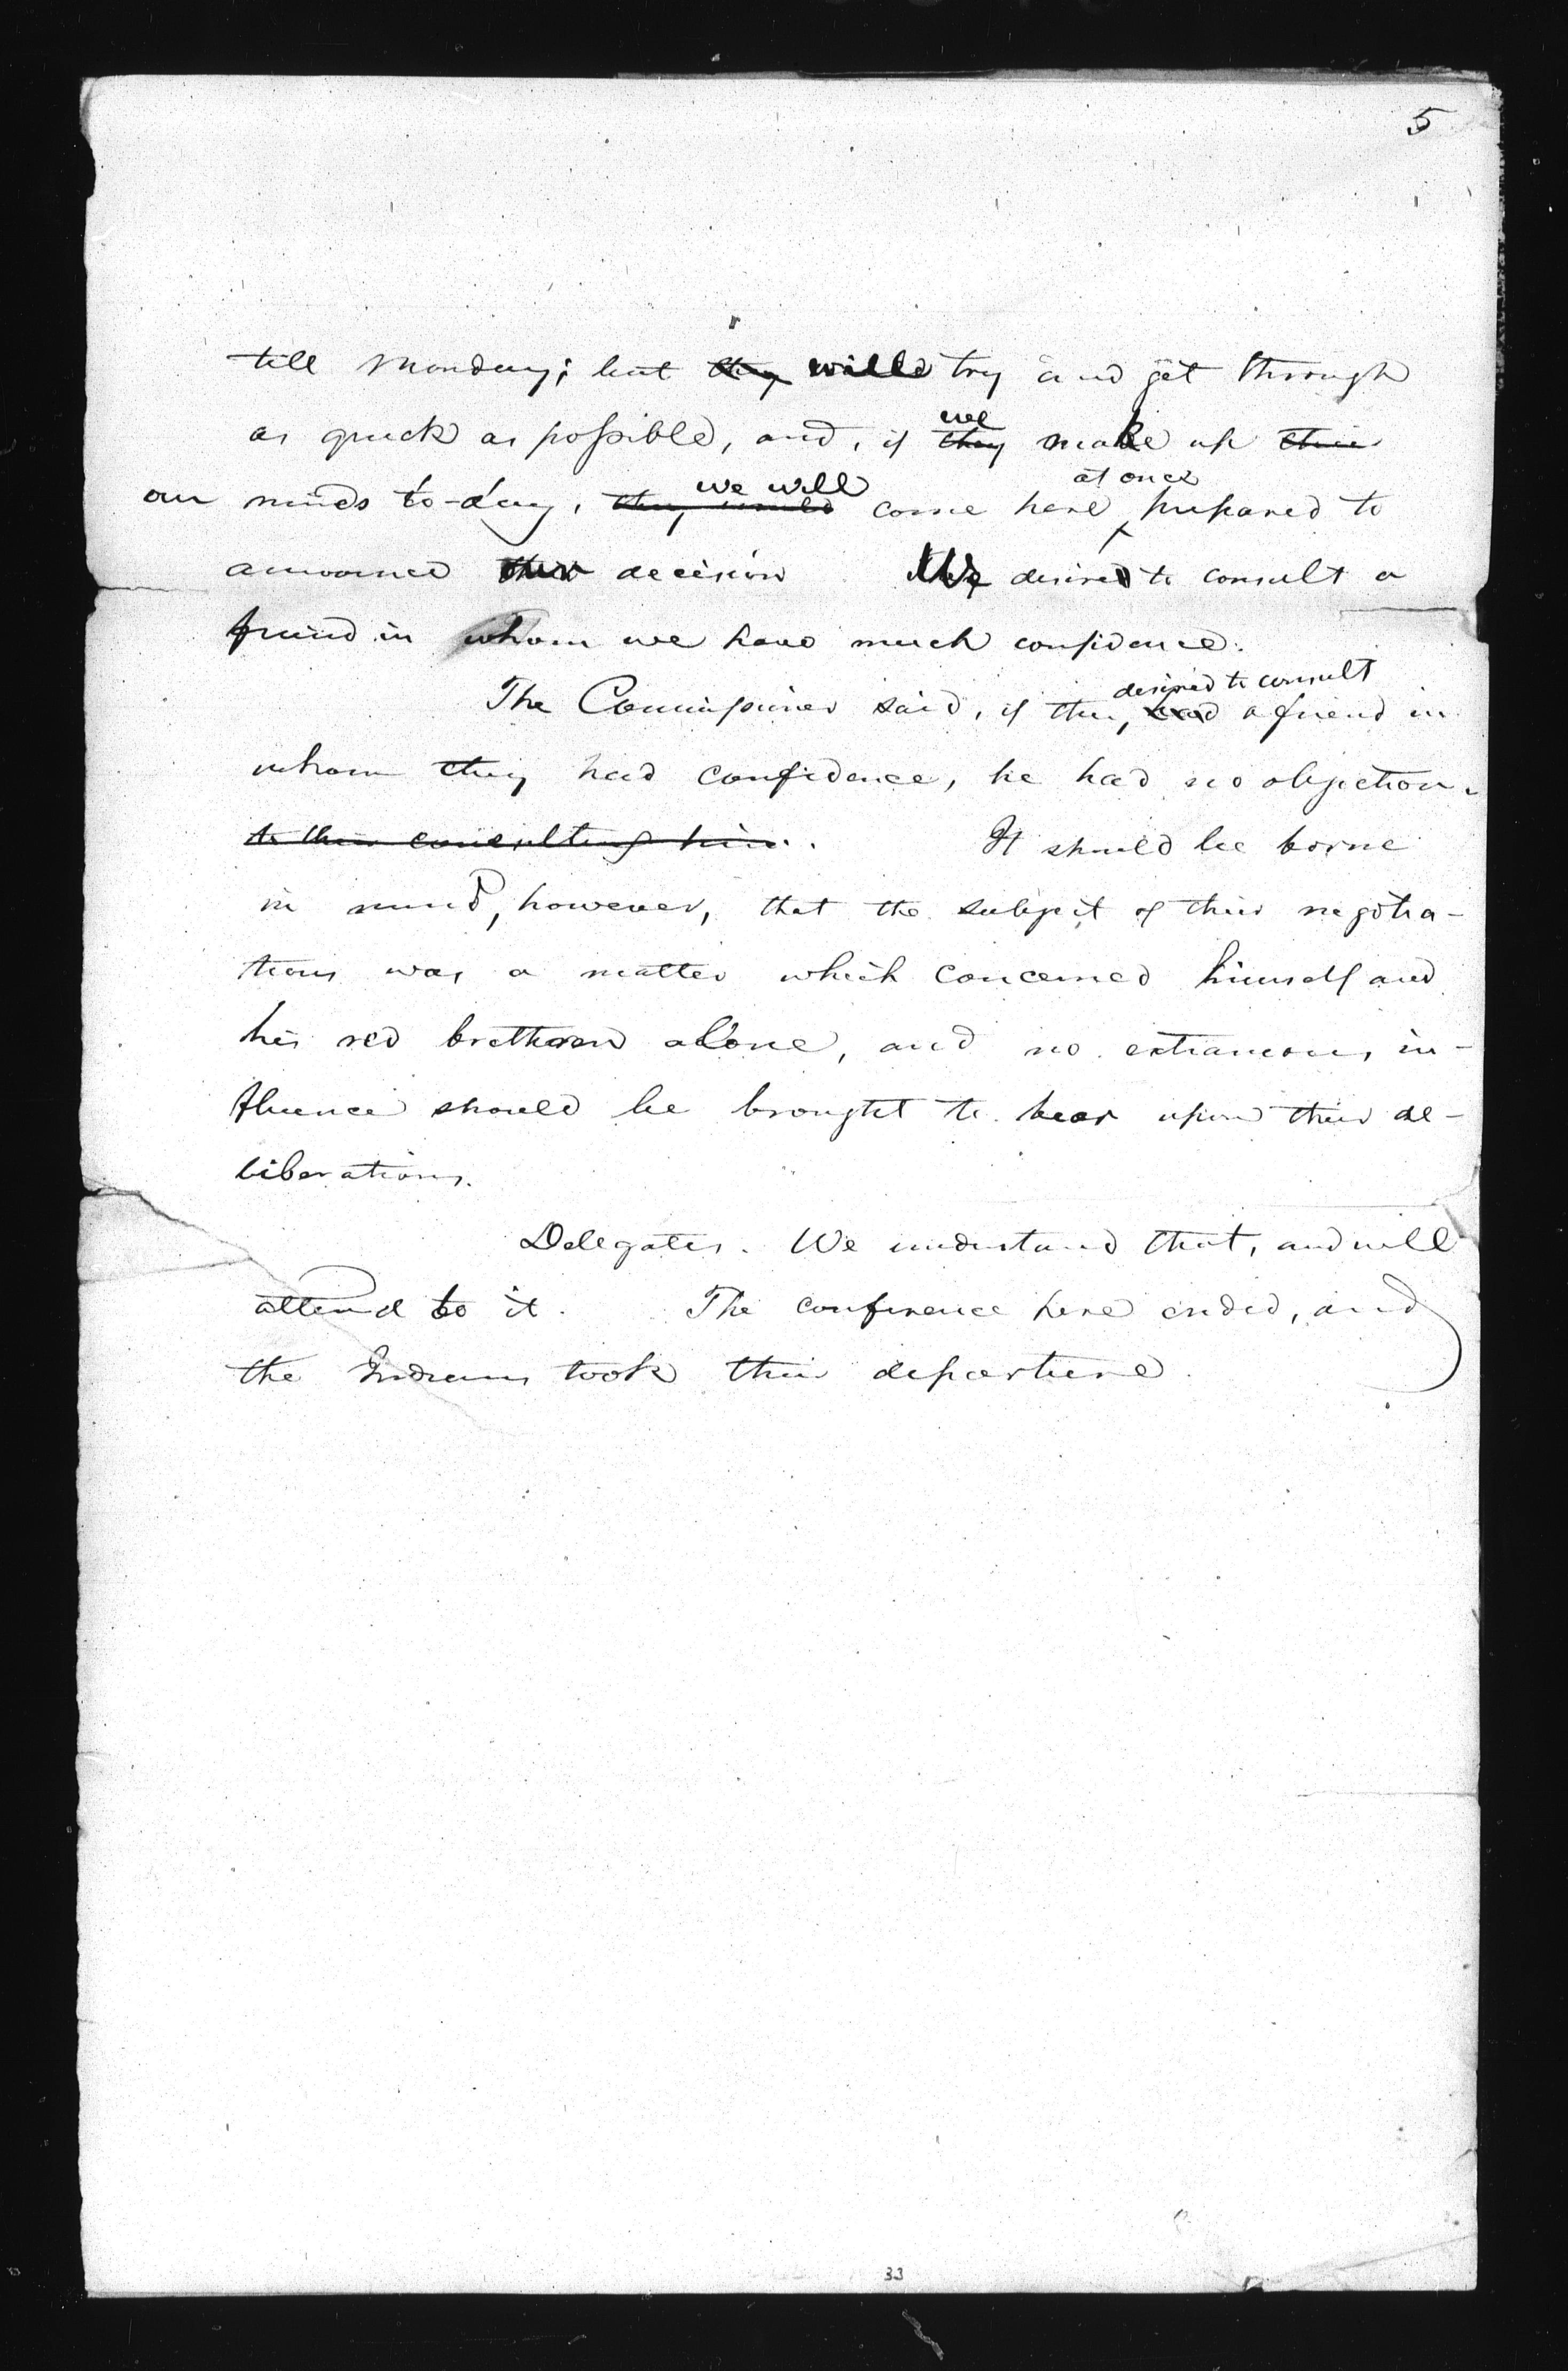 5
till Monday; but they will try and get through
we
as quick as possible, and, if they make up their
we will at once
our minds to-day, they would come here prepared to
announce our decision. We desire to consult a
friend in whom we have much confidence.
desired to consult
The Commissioner said, if they had a friend in
whom they had confidence, he had no objection.
to their consulting him. It should be borne
in mind, however, that the subject of their negotia-
tions was a matter which concerned himself and
his red brethren alone, and no extraneous in-
fluence should be brought to bear upon their de-
liberations.
Delegates. We understand that, and will
attend to it. The conference here ended, and
the Indians took their departure.
33